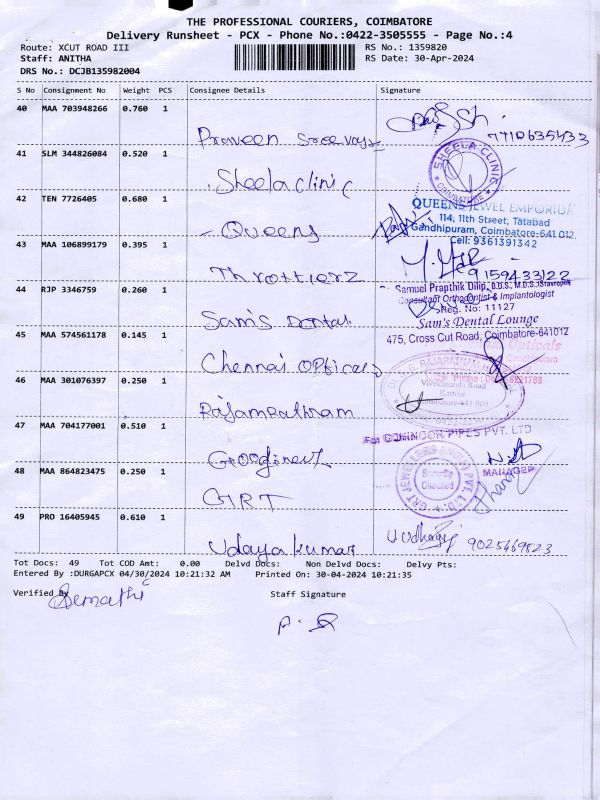 THE PROFESSIONAL COURIERS, COIMBATORE
Delivery Runsheet - PCX - Phone No.:0422-3505555 - Page No.:4
Route: XCUT ROAD III
RS No.: 1359820
Staff: ANITHA
RS Date: 30-Apr-2024
DRS No.: DCJB135982004
S No Consignment No Weight PCS Consignee Details Signature
40 MAA 703948266 0.760 1
Praveen
7710635433
41 SLM 344826084 0.520 1
Sheela clinic
SHEELA CLINIC
COIMBATORE
42 TEN 7726405 0.680 1
Queens
QUEENS JEWEL EMPORIUM
114, 11th Street, Tatabad
Gandhipuram, Coimbatore-641 012.
Cell: 9361391342
43 MAA 106899179 0.395 1
Throttlerz
9159433122
44 RJP 3346759 0.260 1
Sam's Dental
Samuel Prapthik Dilip, B.D.S., M.D.S.
Consultant Orthodontist & Implantologist
Reg. No: 11127
Sam's Dental Lounge
475, Cross Cut Road, Coimbatore-641012
45 MAA 574561178 0.145 1
Chennai Opticals
Opticals
46 MAA 301076397 0.250 1
Rajamrathnam
47 MAA 704177001 0.510 1
PIPES PVT. LTD
MANAGER
48 MAA 864823475 0.250 1
GRT
GRT JEWELLERS
Checked
49 PRO 16405945 0.610 1
Udaya kumar
9025469823
Tot Docs: 49 Tot COD Amt: 0.00 Delvd Docs: Non Delvd Docs: Delvy Pts:
Entered By :DURGAPCX 04/30/2024 10:21:32 AM Printed On: 30-04-2024 10:21:35
Verified By
Staff Signature